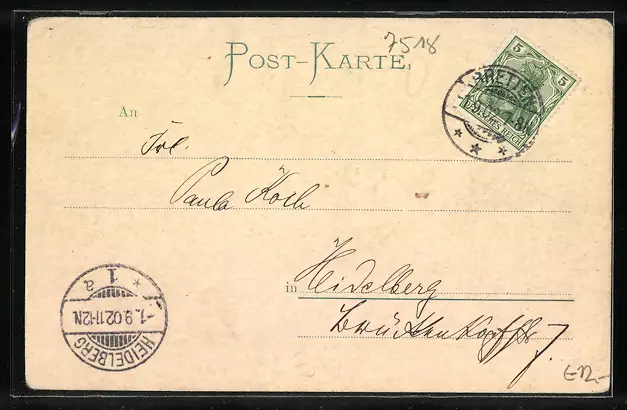 7518
POST-KARTE.
5 5
BRETTEN
An
Frl.
Paula Koch
in Heidelberg
Brückenkopfstr 7.
HEIDELBERG
-1.9.02.11-12N
* 1 a
€12.-